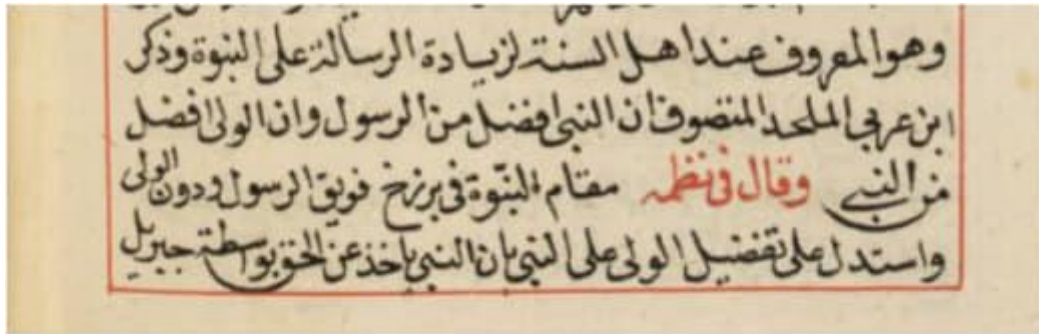 وهو المعروف عند اهل السنة لزيادة الرسالة على النبوة وذكر
ابن عربي الملحد المتصوف ان النبي افضل من الرسول وان الولى افضل
من النبي وقال في نظمه مقام النبوة في برزخ فويق الرسول ودون الولى
واستدل على تفضيل الولى على النبي بان النبي ياخذ عن الحق بواسطة جبريل